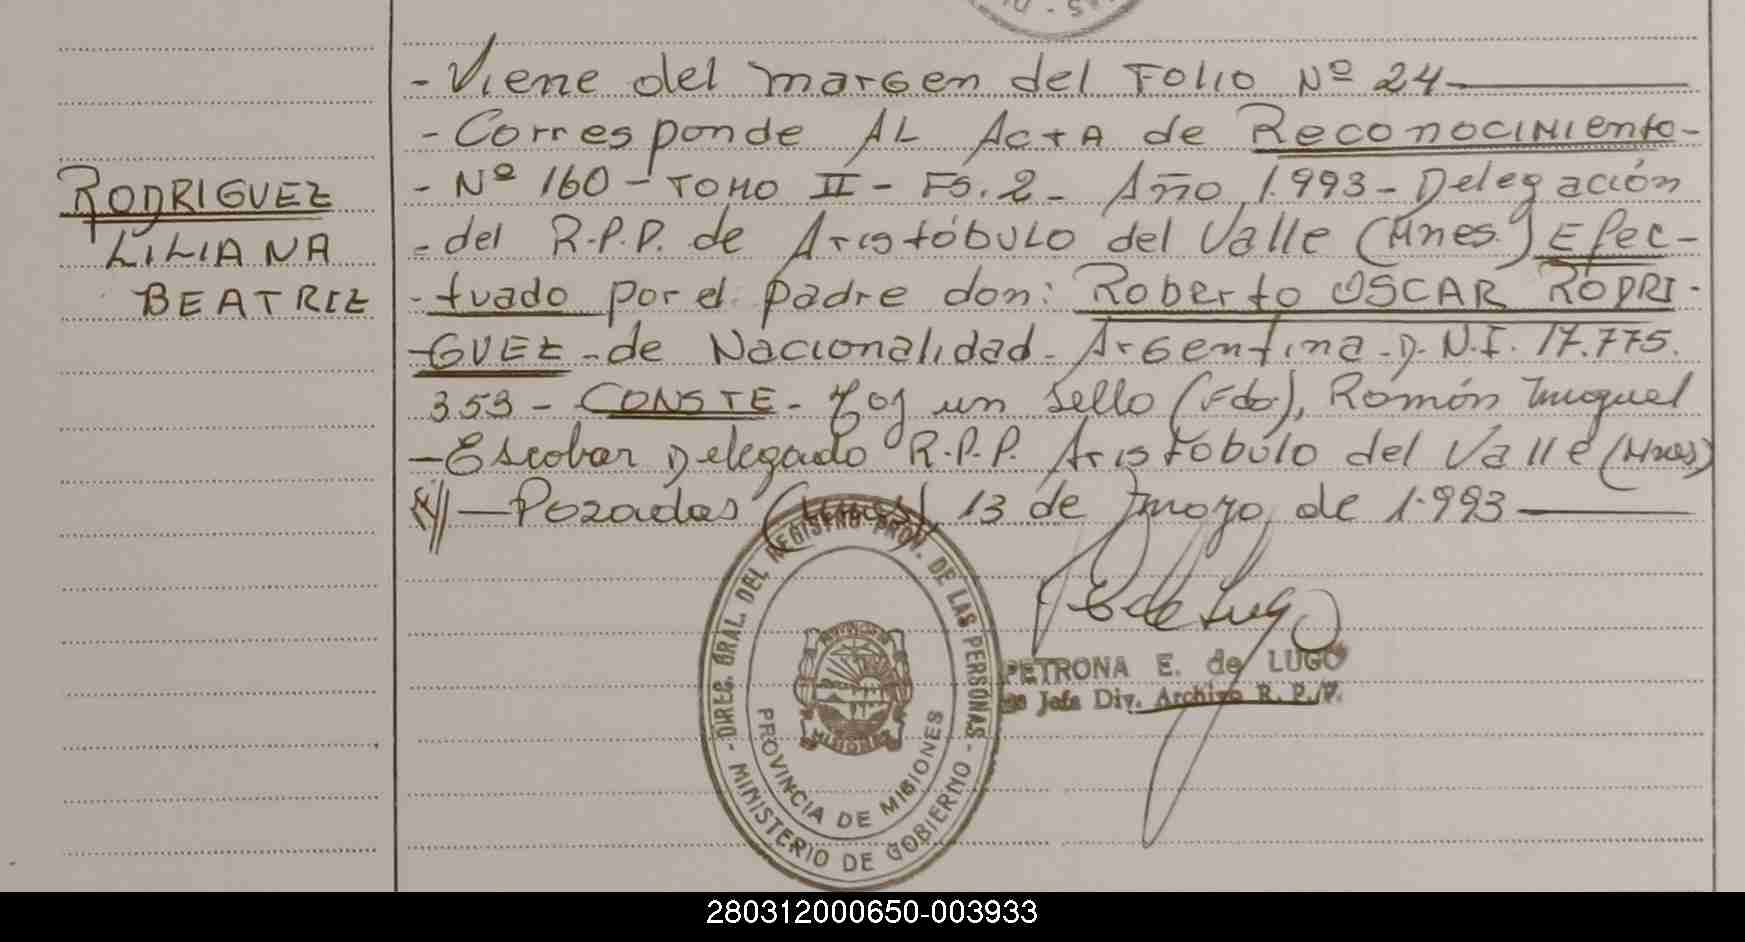 - Viene del margen del Folio Nº 24
- Corresponde AL ActA de Reconocimiento-
- Nº 160 - TOMO II - Fs. 2 - Año 1.993 - Delegación
RODRIGUEZ
- del R.P.P. de Aristóbulo del Valle (Mnes.) Efec-
LILIANA
- tuado por el padre don: Roberto OSCAR RODRI-
BEATRIZ
-GUEZ - de Nacionalidad - Argentina - D.N.I. 17.775.
353 - CONSTE - Hay un sello (Fdo), Román Miguel
- Escobar Delegado R.P.P. Aristóbulo del Valle (Mnes)
- Posadas (Mnes), 13 de Mayo de 1.993
P E de Lugo
PETRONA E. de LUGO
Jefa Div. Archivo R. P. P.
- DIREC. GRAL. DEL REGISTRO PROV. DE LAS PERSONAS -
MINISTERIO DE GOBIERNO
PROVINCIA DE MISIONES
MISIONES
280312000650-003933